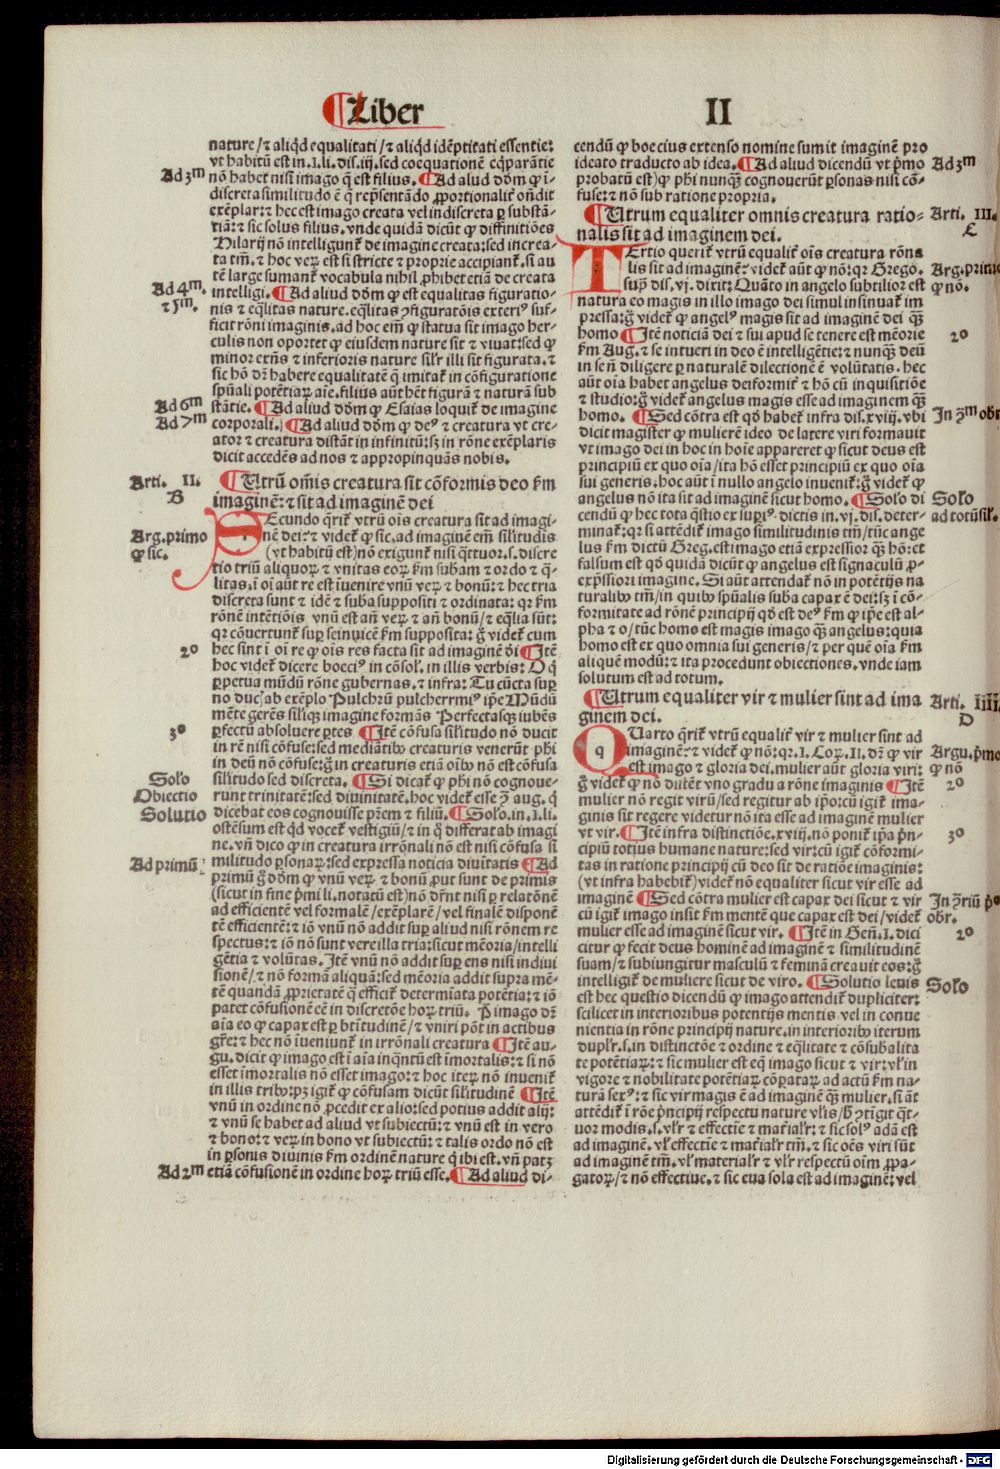 ¶Liber
II
nature/⁊ aliq̇d equalitati/⁊ aliq̇d idēptitati essentie:
vt habitū est in.I.li.dis.iij.sed coequationē eq̇parātie
Ad 3m nō habet nisi imago q̄ est filius. ¶Ad aliud dōm ꝙ ī-
discreta similitudo ē q̄ rep̄sentādo ꝓportionalit̄ on̄dit
exēplar:⁊ hec est imago creata vel indiscreta ꝑ substā-
tiā:⁊ sic solus filius.vnde quidā dicūt ꝙ diffinitiōes
Hilarij nō intelligunt̄ de imagine creata:sed increa-
ta tm̄.⁊ hoc veꝝ est si stricte ⁊ proprie accipiant̄.si au
tē large sumant̄ vocabula nihil ꝓhibet etiā de creata
Ad 4m. intelligi. ¶Ad aliud dōm ꝙ est equalitas figuratio-
⁊ 5m. nis ⁊ eq̄litas nature.eq̄litas ꝯfiguratōis exteriꝰ suf-
ficit rōni imaginis.ad hoc em̄ ꝙ statua sit imago her-
culis non oportet ꝙ eiusdem nature sit ⁊ viuat:sed ꝙ
minor exn̄s ⁊ inferioris nature silr̄ illi sit figurata.⁊
sic hō dr̄ habere equalitatē q̄ imitat̄ in cōfiguratione
spūali potētiaꝝ aīe.filius aūt hēt figurā ⁊ naturā sub
Ad 6m stātie. ¶Ad aliud dōm ꝙ Esaias loquit̄ de imagine
Ad 7m corporali. ¶Ad aliud dōm ꝙ deꝰ ⁊ creatura vt cre-
ator ⁊ creatura distāt in infinitū:sꝫ in rōne exēplaris
dicit accedēs ad nos ⁊ appropinquās nobis.
Arti. II. ¶Utrū om̄is creatura sit cōformis deo ẜm
B imaginē:⁊ sit ad imaginē dei
SEcundo q̄rit̄ vtrū oīs creatura sit ad imagi-
Arg.primo nē dei:⁊ videt̄ ꝙ sic.ad imaginē em̄ silitudīs
ꝙ sic. (vt habitū est)nō exigunt̄ nisi q̄ttuor.s.discre
tio triū aliquoꝝ ⁊ vnitas eoꝝ ẜm subam ⁊ ordo ⁊ q̄-
litas.ī oī aūt re est īuenire vnū veꝝ ⁊ bonū:⁊ hec tria
discreta sunt ⁊ idē ⁊ suba suppositi ⁊ ordinata: qꝛ ẜm
rōnē intētiōis vnū est an̄ veꝝ ⁊ an̄ bonū/⁊ eq̄lia sūt:
qꝛ cōuertunt̄ suꝑ seinuicē ẜm supposita: ḡ videt̄ cum
hec sint ī oī re ꝙ oīs res facta sit ad imaginē dei ¶Itē
2o hoc videt̄ dicere boeciꝰ in cōsol.in illis verbis: O q̄
ꝑpetua mūdū rōne gubernas.⁊ infra: Tu cūcta suꝑ
no ducis ab exēplo Pulchrū pulcherrimꝰ ip̄e Mūdū
mēte gerēs siliqꝫ imagine formās Perfectasqꝫ iubēs
3o ꝑfectū absoluere ꝑtes ¶Itē cōfusa silitudo nō ducit
in rē nisi cōfuse:sed mediātibꝰ creaturis venerūt phi
in deū nō cōfuse:ḡ in creaturis etiā oībꝰ nō est cōfusa
Solo silitudo sed discreta. ¶Si dicat̄ ꝙ phi nō cognoue-
Obiectio runt trinitatē:sed diuinitatē.hoc videt̄ esse ꝯ aug. q̄
Solutio dicebat eos cognouisse pr̄em ⁊ filiū. ¶Solo.in.I.li.
ostēsum est q̇d vocet̄ vestigiū/⁊ in q̄ differat ab imagi
ne.vn̄ dico ꝙ in creatura irrōnali nō est nisi cōfusa si
Ad primū: militudo ꝑsonaꝝ:sed expressa noticia diuitatis ¶Ad
primū ḡ dōm ꝙ vnū veꝝ ⁊ bonū ꝓut sunt de primis
(sicut in fine pr̄mi li.notatū est)nō dr̄nt nisi ꝑ relatōnē
ad efficientē vel formalē/exēplarē/vel finalē disponē
tē efficientē:⁊ iō vnū nō addit suꝑ aliud nisi rōnem re
spectus:⁊ iō nō sunt vere illa tria:sicut mēoria/intelli
gētia ⁊ volūtas.Itē vnū nō addit suꝑ ens nisi indiui
sionē/⁊ nō formā aliquā:sed mēoria addit supra mē-
tē quandā ꝓprietatē q̄ efficit̄ determīata potētia:⁊ iō
patet cōfusionē eē in discretōe hoꝝ triū. Pimago dr̄
aīa eo ꝙ capax est ꝑ btītudinē/⁊ vniri pōt in actibus
gr̄e:⁊ hec nō īueniunt̄ in irrōnali creatura ¶Itē au-
gu.dicit ꝙ imago est ī aīa inq̄ntū est īmortalis:⁊ si nō
esset īmortalis nō esset imago:⁊ hoc iteꝝ nō inuenit̄
in illis tribꝰ:pꝫ igit̄ ꝙ cōfusam dicūt silitudinē ¶Itē
vnū in ordine nō ꝓcedit ex alio:sed potius addit alij:
⁊ vnū se habet ad aliud vt subiectū:⁊ vnū est in vero
⁊ bono:⁊ veꝝ in bono vt subiectū:⁊ talis ordo nō est
in ꝑsonis diuinis ẜm ordinē nature q̄ ibi est.vn̄ patꝫ
Ad 2m etiā cōfusionē in ordine hoꝝ triū esse. ¶Ad aliud di-
cendū ꝙ boecius extenso nomine sumit imaginē pro
ideato traducto ab idea. ¶Ad aliud dicendū vt pr̄mo Ad 3m
probatū est)ꝙ phi nunqꝫ cognouerūt ꝑsonas nisi cō-
fuse:⁊ nō sub ratione propria.
¶Utrum equaliter omnis creatura ratio- Arti. III.
nalis sit ad imaginem dei. C
TErtio querit̄ vtrū equalit̄ oīs creatura rōna
lis sit ad imaginē:⁊ videt̄ aūt ꝙ nō:qꝛ Grego. Arg.primo
suꝑ dis.vj.dicit: Quāto in angelo subtilior est ꝙ nō.
natura eo magis in illo imago dei simul insinuat̄ im
pressa:ḡ videt̄ ꝙ angelꝰ magis sit ad imaginē dei qꝫ
homo ¶Itē noticiā dei ⁊ sui apud se tenere est mēorie 2o
ẜm Aug.⁊ se intueri in deo ē intelligētie:⁊ nunqꝫ deū
in se n̄ diligere ꝑ naturalē dilectionē ē volūtatis.hec
aūt oīa habet angelus deiformit̄ ⁊ hō cū inquisitiōe
⁊ studio:ḡ videt̄ angelus magis esse ad imaginem qꝫ
homo. ¶Sed cōtra est qd̄ habet̄ infra dis.xviij.vbi In ꝯm obr
dicit magister ꝙ mulierē ideo de latere viri formauit
vt imago dei in hoc in hoīe appareret ꝙ sicut deus est
principiū ex quo oīa/ita hō esset principiū ex quo oīa
sui generis.hoc aūt ī nullo angelo inuenit̄:ḡ videt̄ ꝙ
angelus nō ita sit ad imaginē sicut homo. ¶Solo di Solo
cendū ꝙ hec tota q̄stio ex iuꝑiꝰ dictis in.vj.dis.deter- ad totū sil.
minat̄:qꝛ si attēdit̄ imago similitudinis tm̄/tūc ange
lus ẜm dictū Greg.est imago etiā expressior qꝫ hō:et
falsum est qd̄ quidā dicūt ꝙ angelus est signaculū ꝓ-
exp̄ssiori imagine. Si aūt attendat̄ nō in potētijs na
turalibꝰ tm̄/in quibꝰ spūalis suba capax ē dei:sꝫ ī cō-
formitate ad rōnē principij qd̄ est deꝰ ẜm ꝙ ip̄e est al-
pha ⁊ o/tūc homo est magis imago qꝫ angelus:quia
homo est ex quo omnia sui generis/⁊ per quē oīa ẜm
aliquē modū:⁊ ita procedunt obiectiones.vnde iam
solutum est ad totum.
¶Utrum equaliter vir ⁊ mulier sint ad ima Arti. IIII.
ginem dei. D
QUarto q̄rit̄ vtrū equalit̄ vir ⁊ mulier sint ad
imaginē:⁊ videt̄ ꝙ nō:qꝛ.I.Coꝝ.II.dr̄ ꝙ vir Argu.pr̄mo
est imago ⁊ gloria dei.mulier aūt gloria viri: ꝙ nō
ḡ videt̄ ꝙ nō dīitēt vno gradu a rōne imaginis ¶Itē 2o
mulier nō regit virū/sed regitur ab ip̄o:cū igit̄ ima-
ginis sit regere videtur nō ita esse ad imaginē mulier
vt vir. ¶Itē infra distinctiōe.xviij.nō ponit̄ ip̄a pr̄n- 3o
cipiū totius humane nature:sed vir:cū igit̄ cōformi-
tas in ratione principij cū deo sit de ratiōe imaginis:
(vt infra habebit̄)videt̄ nō equaliter sicut vir esse ad
imaginē ¶Sed cōtra mulier est capax dei sicut ⁊ vir In ꝯriū pr̄o
cū igit̄ imago insit ẜm mentē que capax est dei/videt̄ obr.
mulier esse ad imaginē sicut vir. ¶Itē in Gen̄.I.dici 2o
citur ꝙ fecit deus hominē ad imaginē ⁊ similitudinē
suam/⁊ subiungitur masculū ⁊ feminā creauit eos:ḡ
intelligit̄ de muliere sicut de viro. ¶Solutio leuis Solo
est hec questio dicendū ꝙ imago attendit̄ dupliciter:
scilicet in interioribus potentijs mentis vel in conue
nientia in rōne principij nature.in interioribꝰ iterum
duplr̄.s.in distinctōe ⁊ ordine ⁊ eq̄litate ⁊ cōsubalita
te potētiaꝝ:⁊ sic mulier est eq̄ imago sicut ⁊ vir:vl̄ in
vigore ⁊ nobilitate potētiaꝝ cōꝑataꝝ ad actū ẜm na-
turā sexꝰ:⁊ sic vir magis ē ad imaginē qꝫ mulier.si āt
attēdit̄ ī rōe pr̄ncipij respectu nature vl̄is/hꝰ ꝯtīgit q̄t-
uor modis.s.vl̄r ⁊ effectīe ⁊ mat̄ialr̄:⁊ sic solꝰ adā est
ad imaginē.vl̄ effectīe ⁊ mat̄ialr̄ tm̄.⁊ sic oēs viri sūt
ad imaginē tm̄.vl̄ materialr̄ ⁊ vl̄r respectū oīm ꝓpa-
gatoꝝ/⁊ nō effectiue.⁊ sic eua sola est ad imaginē: vel
Digitalisierung gefördert durch die Deutsche Forschungsgemeinschaft - DFG